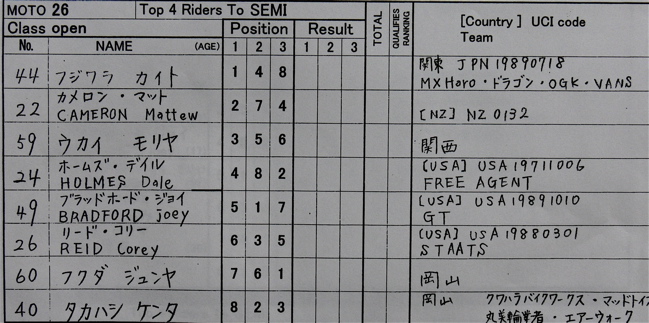 MOTO 26 Top 4 Riders To SEMI
Class open Position Result TOTAL QUALIFIES RANKING [Country] UCI code
Team
No. NAME (AGE) 1 2 3 1 2 3
44 フジワラ カイト 1 4 8 関東 JPN 19890718
MX Horo・ドラゴン・OGK・VANS
22 カメロン・マット 2 7 4 [NZ] NZ 0132
CAMERON Mattew
59 ウカイ モリヤ 3 5 6 関西
24 ホームズ・デイル 4 8 2 [USA] USA 19711006
HOLMES Dale FREE AGENT
49 ブラッドホード・ジョイ 5 1 7 [USA] USA 19891010
BRADFORD joey GT
26 リード・コリー 6 3 5 [USA] USA 19880301
REID Corey STAATS
60 フクダ ジュンヤ 7 6 1 岡山
40 タカハシ ケンタ 8 2 3 岡山 クワハラバイクワークス・マッドトイズ
丸美輪業者・エアーウォーク